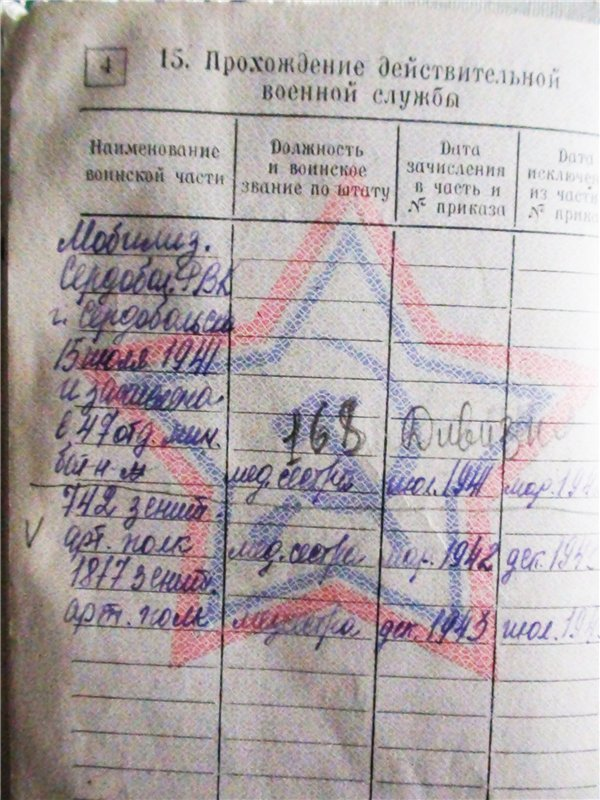 4
15. Прохождение действительной
военной службы
Наименование
воинской части
Должность
и воинское
звание по штату
Дата
зачисления
в часть и
№ приказа
Дата
исключе
из части
№ прика
Мобилиз.
Сердобол. РВК
г. Сердобольска
15 июля 1941
и зачислена
в 47 отд. мин.
бат-н
168 Дивизи
мед. сестра
июл. 1941
мар. 194
742 зенит.
арт. полк
мед. сестра
мар. 1942
дек. 194
1817 зенит.
арт. полк
медсестра
дек. 1943
июл. 194